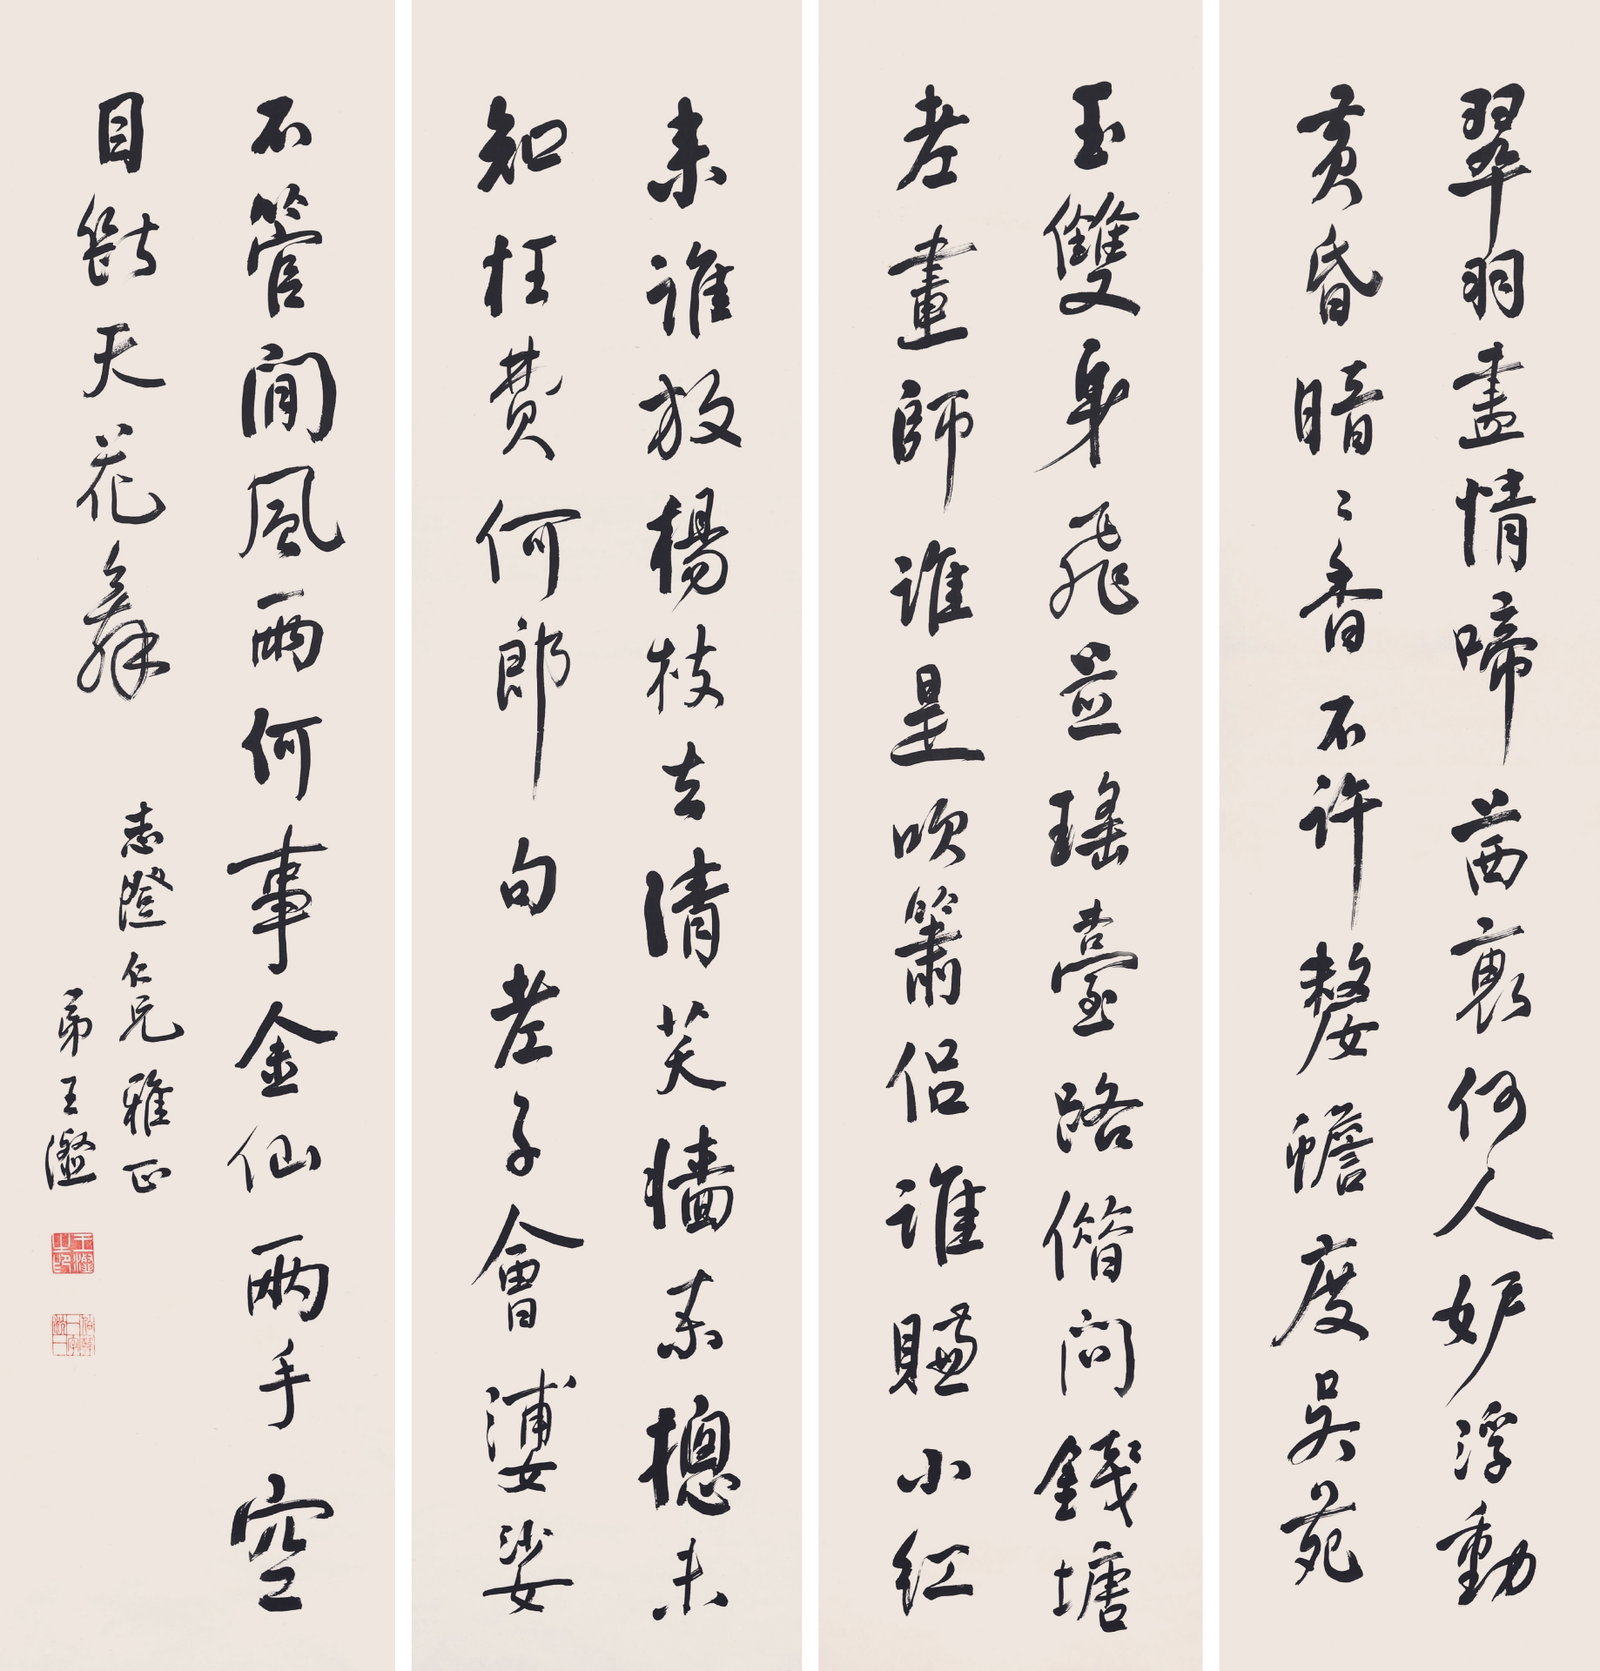 翠羽盡情啼茜裏何人妒浮動
黃昏暗々香不許嫠蟾度吴苑
玉雙身飛並瑤臺路偕問錢塘
老畫師誰是吹簫侶誰賺小紅
来誰放楊枝去清芙牆東總未
知枉費何郎句老子會婆娑
不管閒風雨何事金仙兩手空
目斷天花舞
志澄仁兄雅正
弟王澂